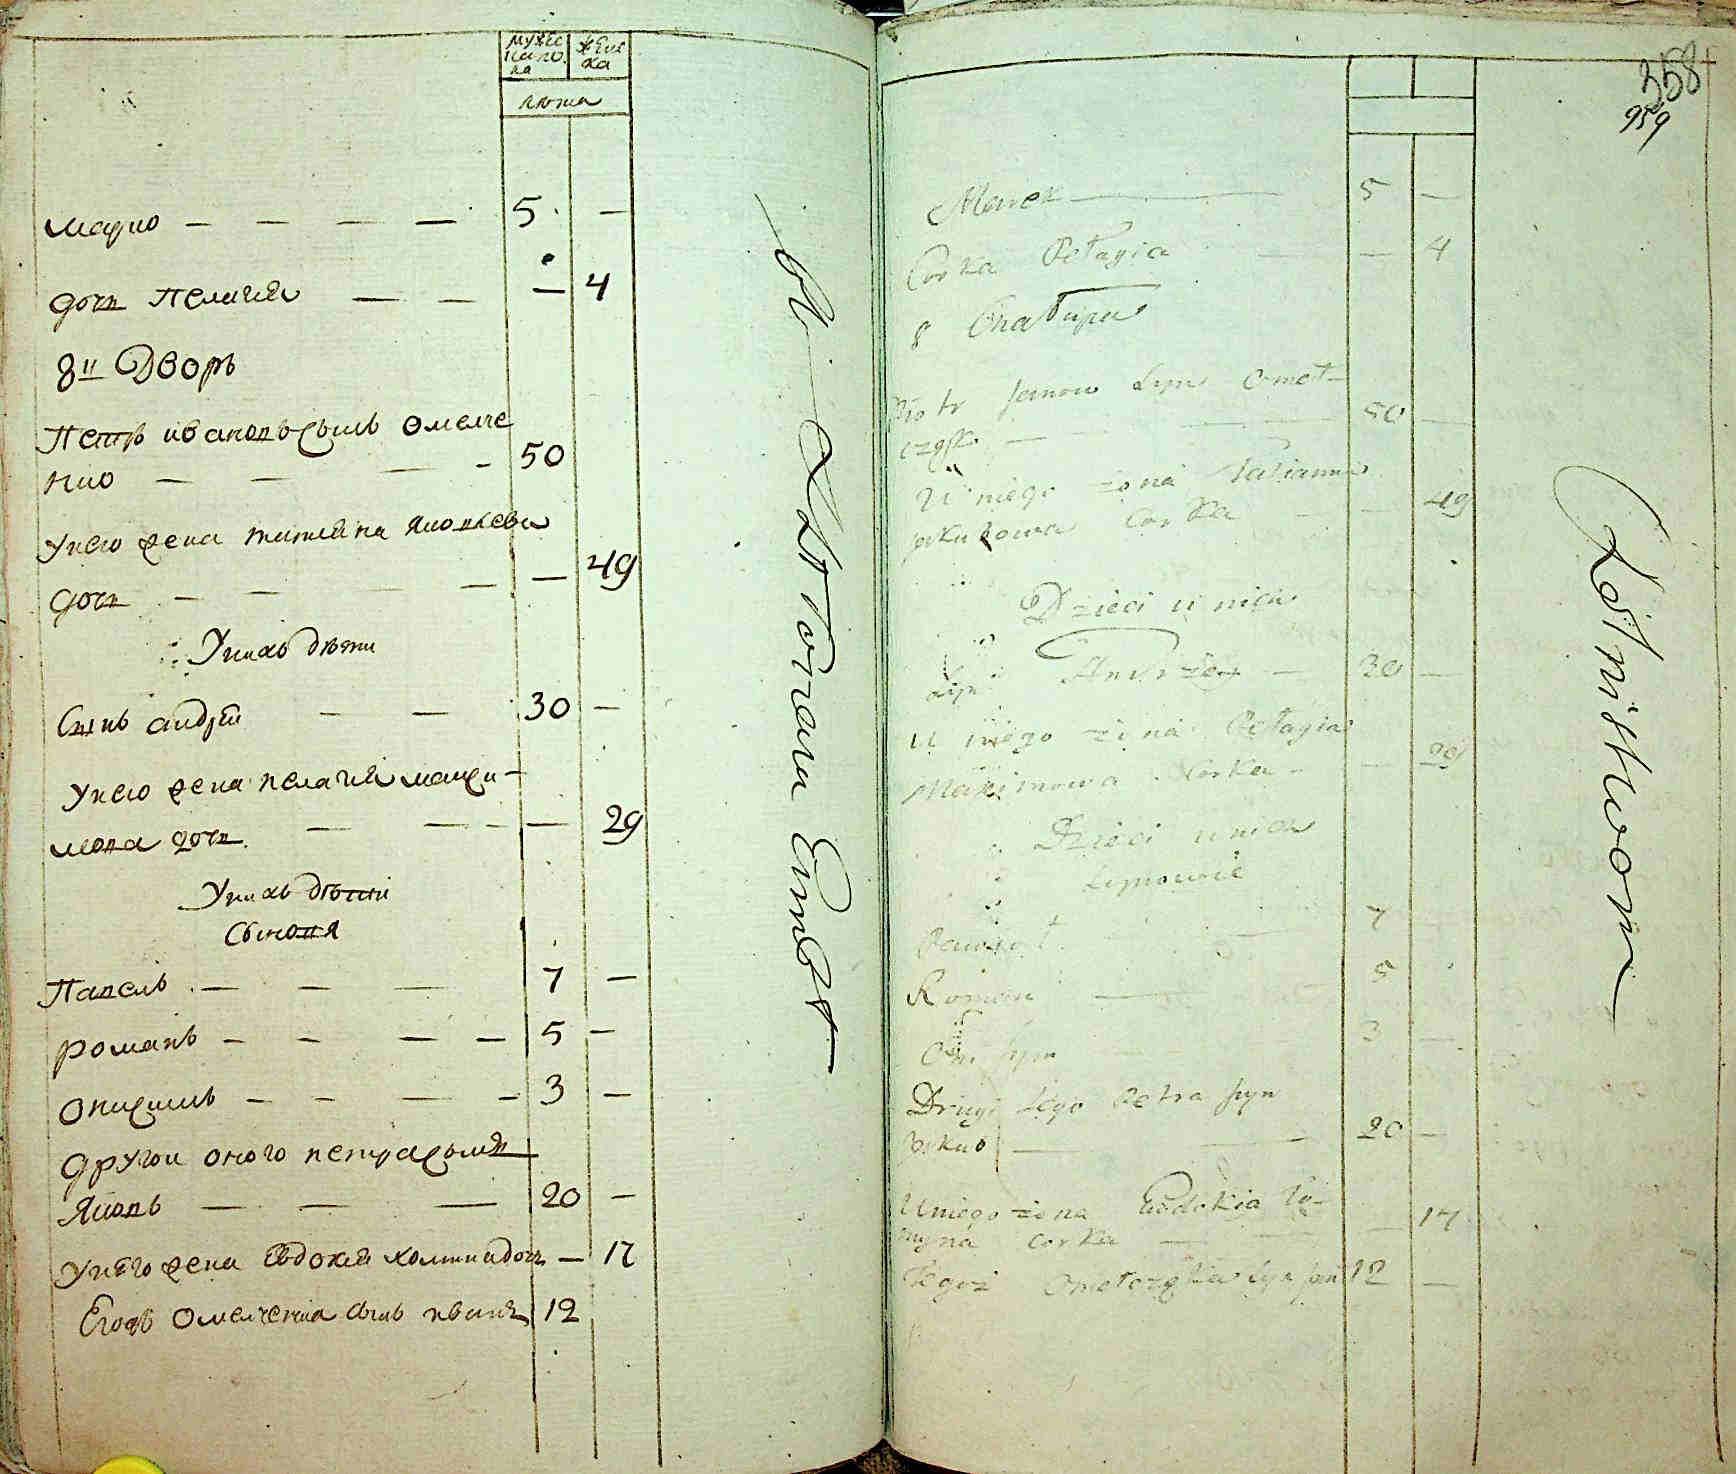 мужеска пола
женска
лѣта
Марко — — — — 5 —
дочь Пелагия — — — 4
8й Дворъ
Петръ Ивановъ сынъ Омелче
нко — — — - 50
У него жена Татияна Яковлева
дочь — — — — 49
У нихъ дѣти
Сынъ Андрей — — 30 —
У него жена Пелагия Макси-
мова дочь — — - — 29
У нихъ дѣти
Сыновя
Павелъ — — — 7 —
Романъ — — — — 5 —
Онисимъ — — — — 3 —
Другои оного Петра сынъ
Яковъ — — — 20 —
У него жена Евдокия Хомина дочь — 17
Егожъ Омелченка сынъ Иванъ 12
Ernest
358
959
Marek — 5 —
Corka Pełagia — — 4
8 Chałupa
Piotr Janow Syn Omel-
częko — — — 50 —
U niego żona Tatianna
Jakubowa Corka — — 49
Dzieci u nich
Syn Andrzey — 30 —
U niego żona Pełagia
Maximowa Corka — — 29
Dzieci u nich
Synowie
Paweł — 7
Roman — 5
Onisym 3 —
Drugi tego Petra syn
Jakub — — 20 —
U niego żona Eudokia Cho-
myna Corka — — 17
Tegoż Omelczęka syn Jan 12 —
Kotmistrzom